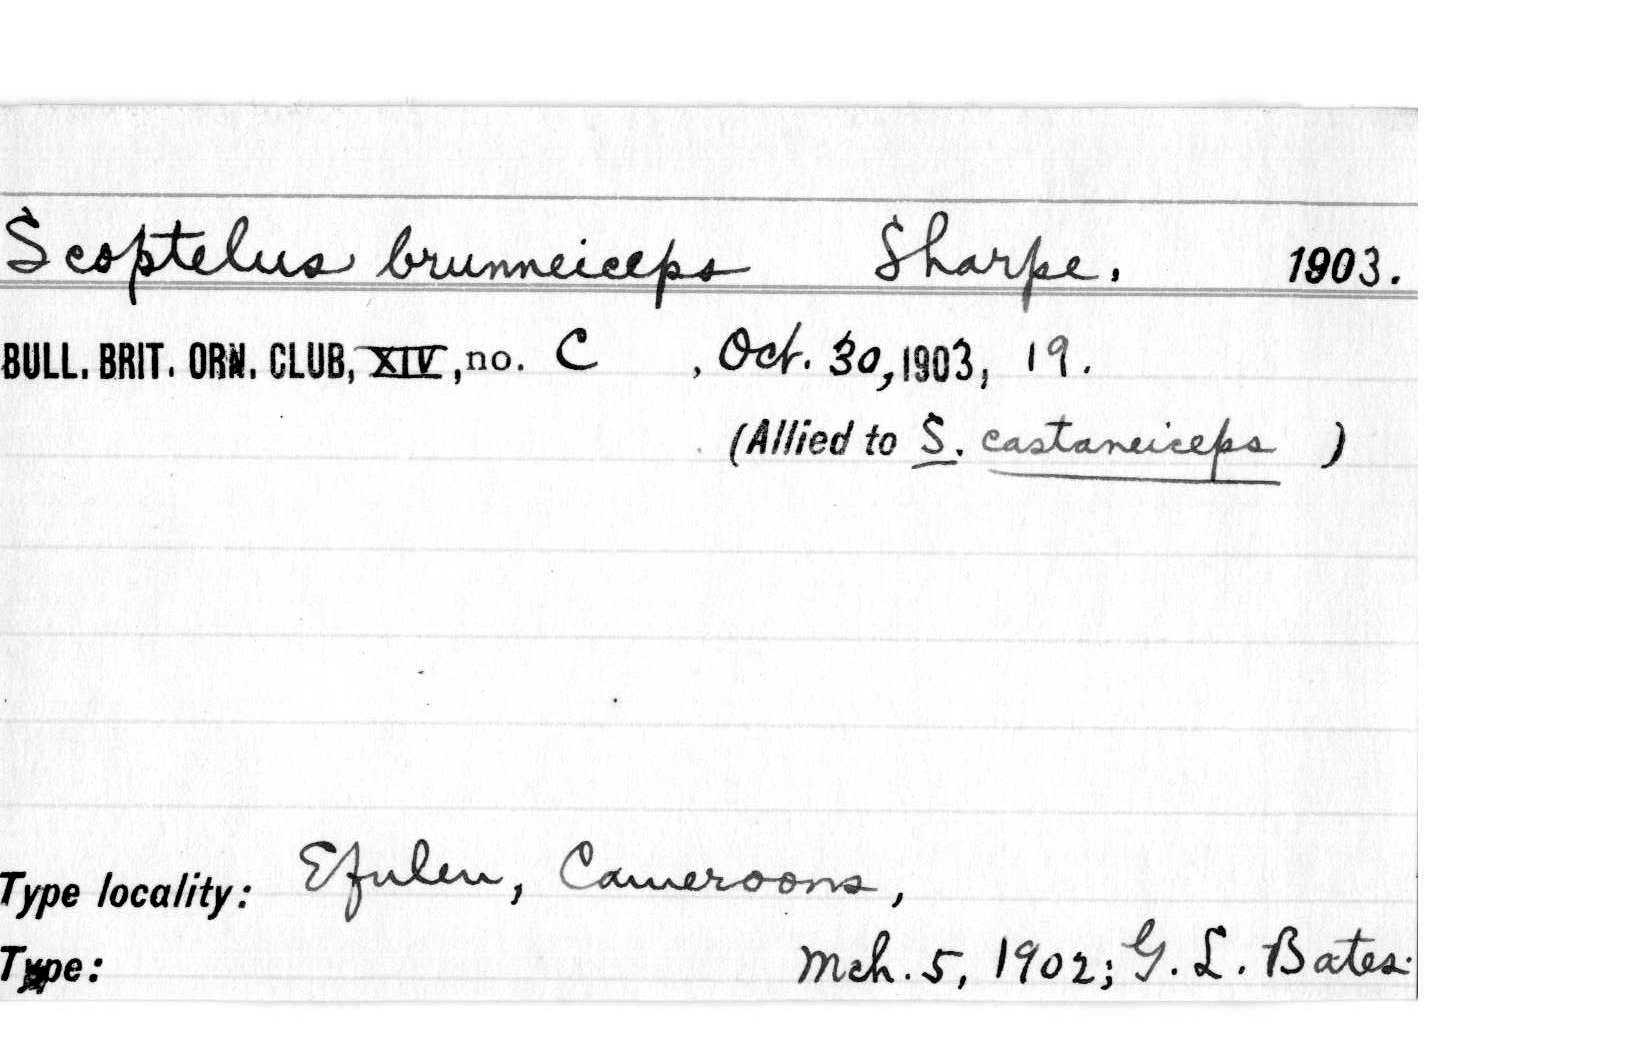 Scoptelus brunneiceps Sharpe. 1903.
BULL. BRIT. ORN. CLUB, XIV, no. C , Oct. 30, 1903, 19.
(Allied to S. castaneiceps )
Type locality: Efulen, Cameroons,
Type: Mch. 5, 1902; G. L. Bates.